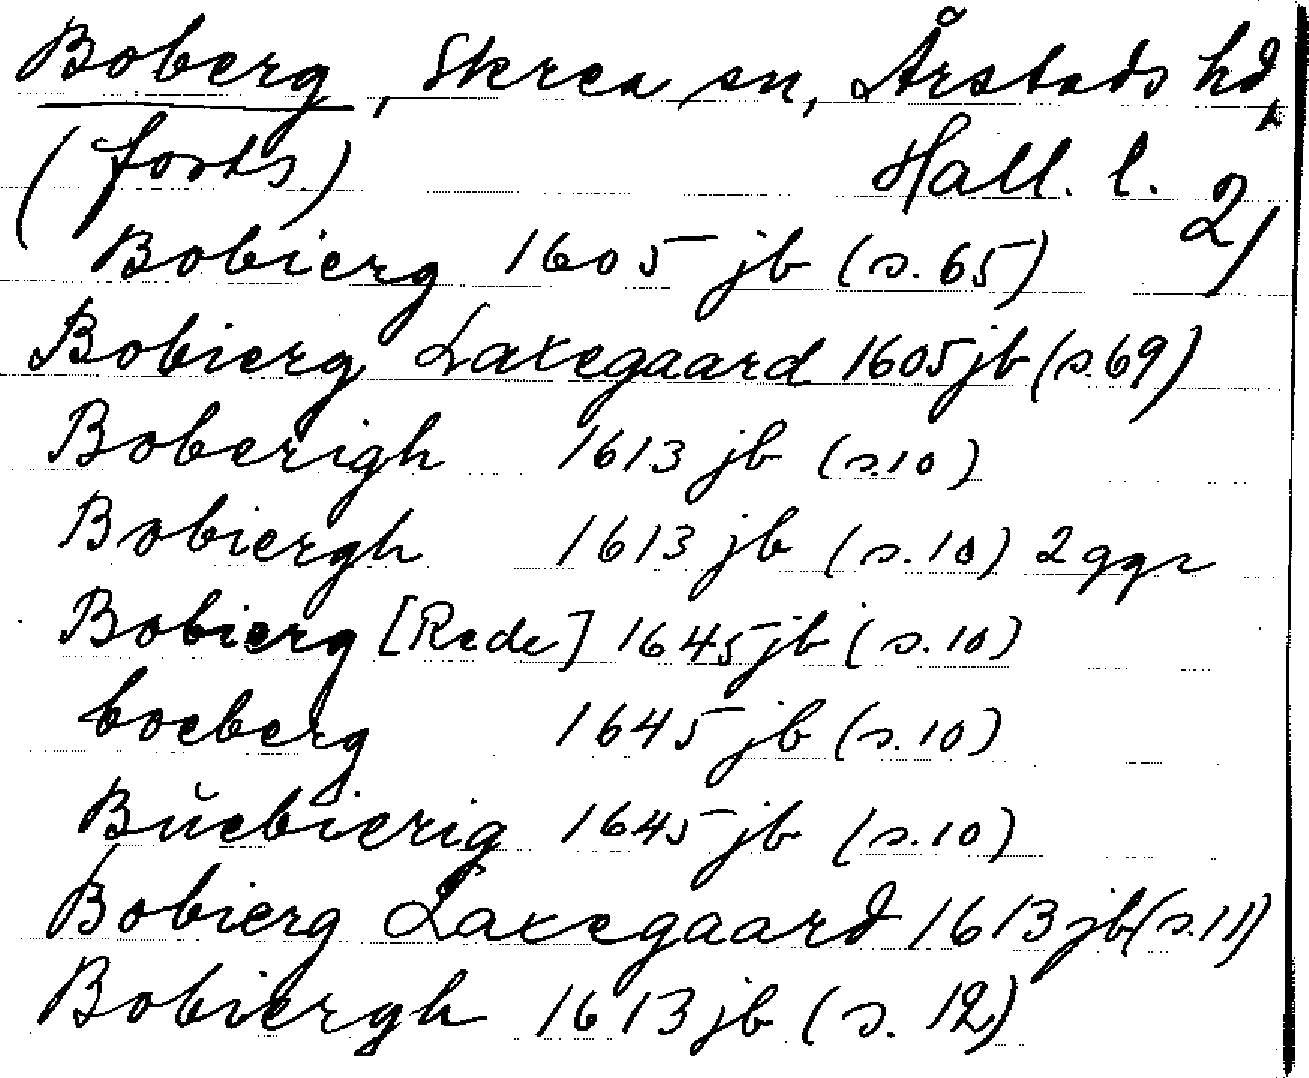 Boberg, Skrea sn, Årstads hd,
(forts) Hall. l. 2)
Bobierg 1605 jb (s. 65)
Bobierg Laxegaard 1605 jb (s. 69)
Boberigh 1613 jb (s. 10)
Bobiergh 1613 jb (s. 10) 2 ggr
Bobierg [Rede] 1645 jb (s. 10)
boeberg 1645 jb (s. 10)
Bŭebierig 1645 jb (s. 10)
Bobierg Laxegaard 1613 jb (s. 11)
Bobiergh 1613 jb (s. 12)